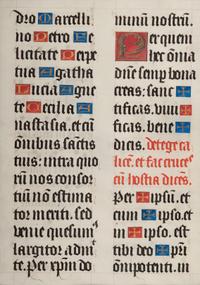 dro Marcelli:
no Petro Fe
licitate Perpe
tua Agatha
Lucia Agne
te Cecilia A
nastasia. et cū
ōnibus sāctis
tuis: intra quo
rū nos consor
tiū nō estima
tor meriti. sed
venie quesum⁹
largitor admi
te. Per xp̄m do
minū nostrū.
Per quem
hec ōmia
dn̄e semp bona
creas: sanc✠
tificas. viui✠
ficas. bene✠
dicis. detegeca
licē. et fac cruces
cū hostia dicēs.
Per✠ipsū. et
cum✠ipso. et
in✠ipso. est
tibi deo✠pr̄i
ōnipotenti. in